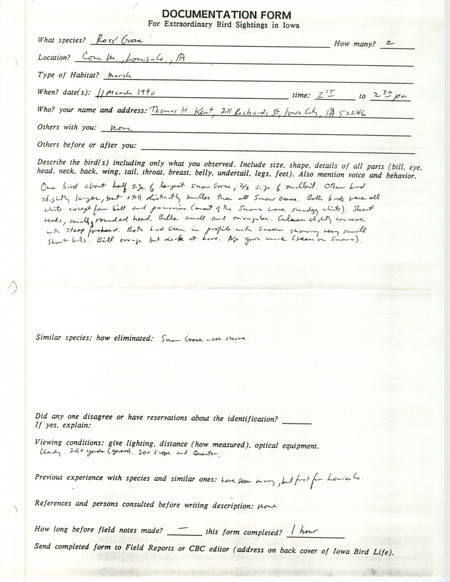 DOCUMENTATION FORM
For Extraordinary Bird Sightings in Iowa
What species? Ross' Goose How many? 2
Location? Cone M., Louisa Co., IA
Type of Habitat? marsh
When? date(s): 11 March 1990 time: to pm
Who? your name and address: Thomas H. Kent, 211 Richards St, Iowa City, IA 52246
Others with you: none
Others before or after you:
Describe the bird(s) including only what you observed. Include size, shape, details of all parts (bill, eye,
head, neck, back, wing, tail, throat, breast, belly, undertail, legs, feet). Also mention voice and behavior.
One bird about half size of largest snow Goose, 2/3 size of smallest. Other bird
slightly larger, but still distinctly smaller than all Snow Geese. Both birds were all
white except for bill and primaries (most of the Snows were smudgy white). Short
necks, small rounded head. Bills small and triangular. Culmen slightly concave
with steep forehead. Both birds seen in profile with Snows showing very small
short bills. Bill orange but dark at base. No grin mark (seen on Snows).
Similar species: how eliminated: Snow Goose - see above
Did any one disagree or have reservations about the identification?
If yes, explain:
Viewing conditions: give lighting, distance (how measured), optical equipment.
Cloudy. 250 yards (guess). 20x scope and Questar.
Previous experience with species and similar ones: have seen many, but first for Louisa Co.
References and persons consulted before writing description: none
How long before field notes made? — this form completed? 1 hour
Send completed form to Field Reports or CBC editor (address on back cover of Iowa Bird Life).